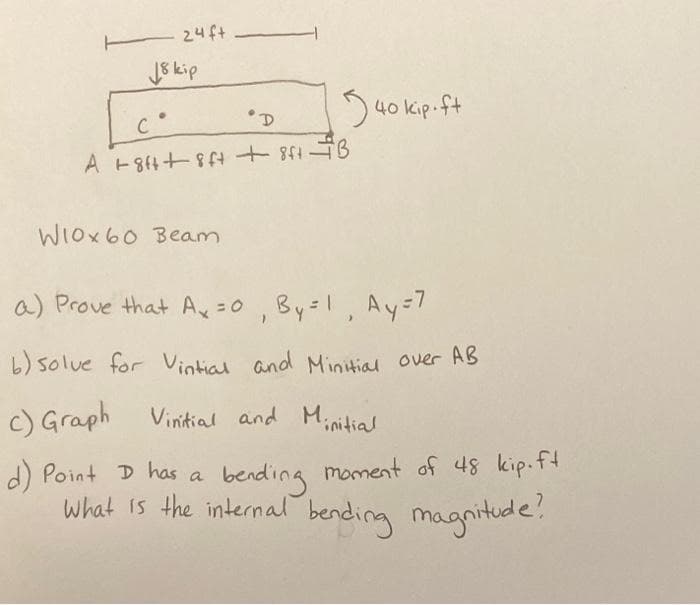 24ft
↓8 kip
40 kip.ft
C
D
A 8ft 8ft 8ft B
W10x60 Beam
a) Prove that Ax=0, By=1, Ay=7
b) solve for Vintial and Minitial over AB
c) Graph Vinitial and Minitial
d) Point D has a bending moment of 48 kip.ft
What is the internal bending magnitude?